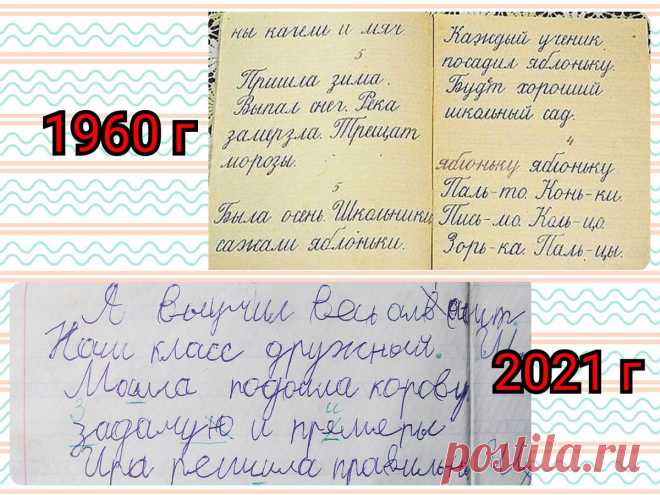 1960 г
ны качели и мяч
5
Пришла зима.
Выпал снег. Река
замерзла. Трещат
морозы.
5
Была осень. Школьники
сажали яблоньки.
Каждый ученик
посадил яблоньку.
Будет хороший
школьный сад.
4
яблоньку яблоньку
Паль-то. Конь-ки.
Пись-мо. Коль-цо.
Зорь-ка. Паль-цы.
2021 г
Я выучил весь
Наш класс дружный.
подоила корову
и прямеры
Ира решила
postila.ru